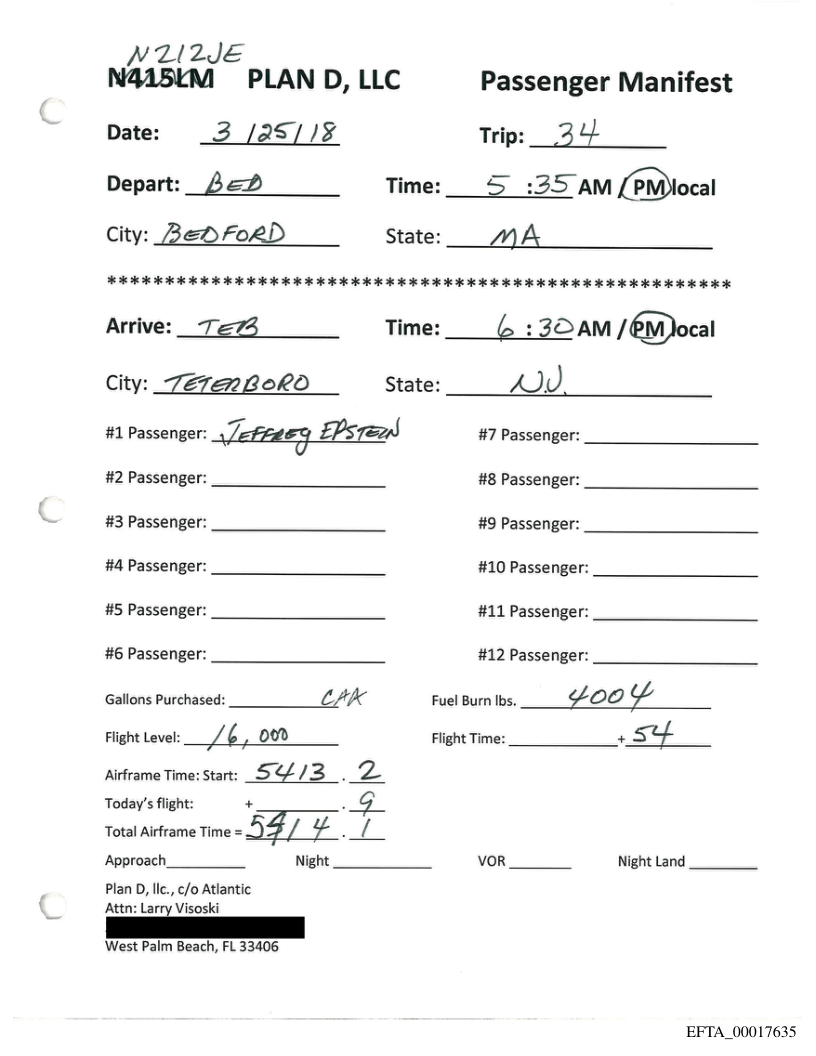 N212JE
N415LM PLAN D, LLC Passenger Manifest
Date: 3 /25/18 Trip: 34
Depart: BED Time: 5 :35 AM / PM local
City: BEDFORD State: MA
******************************************************
Arrive: TEB Time: 6 :30 AM / PM local
City: TETERBORO State: N.J.
#1 Passenger: JEFFREY EPSTEIN #7 Passenger:
#2 Passenger: #8 Passenger:
#3 Passenger: #9 Passenger:
#4 Passenger: #10 Passenger:
#5 Passenger: #11 Passenger:
#6 Passenger: #12 Passenger:
Gallons Purchased: Fuel Burn lbs. 4004
Flight Level: 16,000 Flight Time: + 54
Airframe Time: Start: 5413 . 2
Today's flight: + . 9
Total Airframe Time = 5414 . 1
Approach Night VOR Night Land
Plan D, llc., c/o Atlantic
Attn: Larry Visoski
West Palm Beach, FL 33406
EFTA_00017635